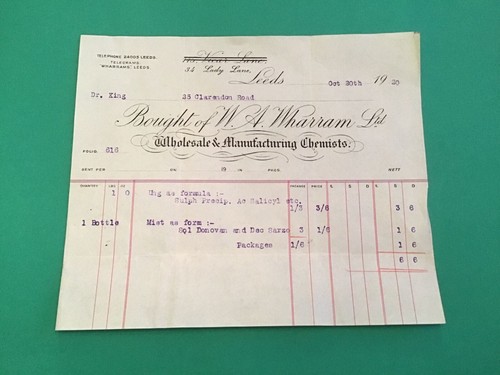 TELEPHONE 24002 LEEDS.
TELEGRAMS:
"WHARRAMS," LEEDS.
34 Lady Lane,
Leeds Oct 30th 19
Dr. King 25 Clarendon Road
Bought of W. A. Wharram Ltd
Wholesale & Manufacturing Chemists.
FOLIO. 616
SENT PER ON 19 IN PKGS. NETT
QUANTITY LBS. OZ. PACKAGE PRICE £ S D
1 0 Ung as formula :-
Sulph Precip. Ac Salicyl etc. 1/3 3/6 3 6
1 Bottle Mist as form :-
Sol Donovan and Deo Sarso 3 1/6 1 6
Packages 1/6 1 6
6 6